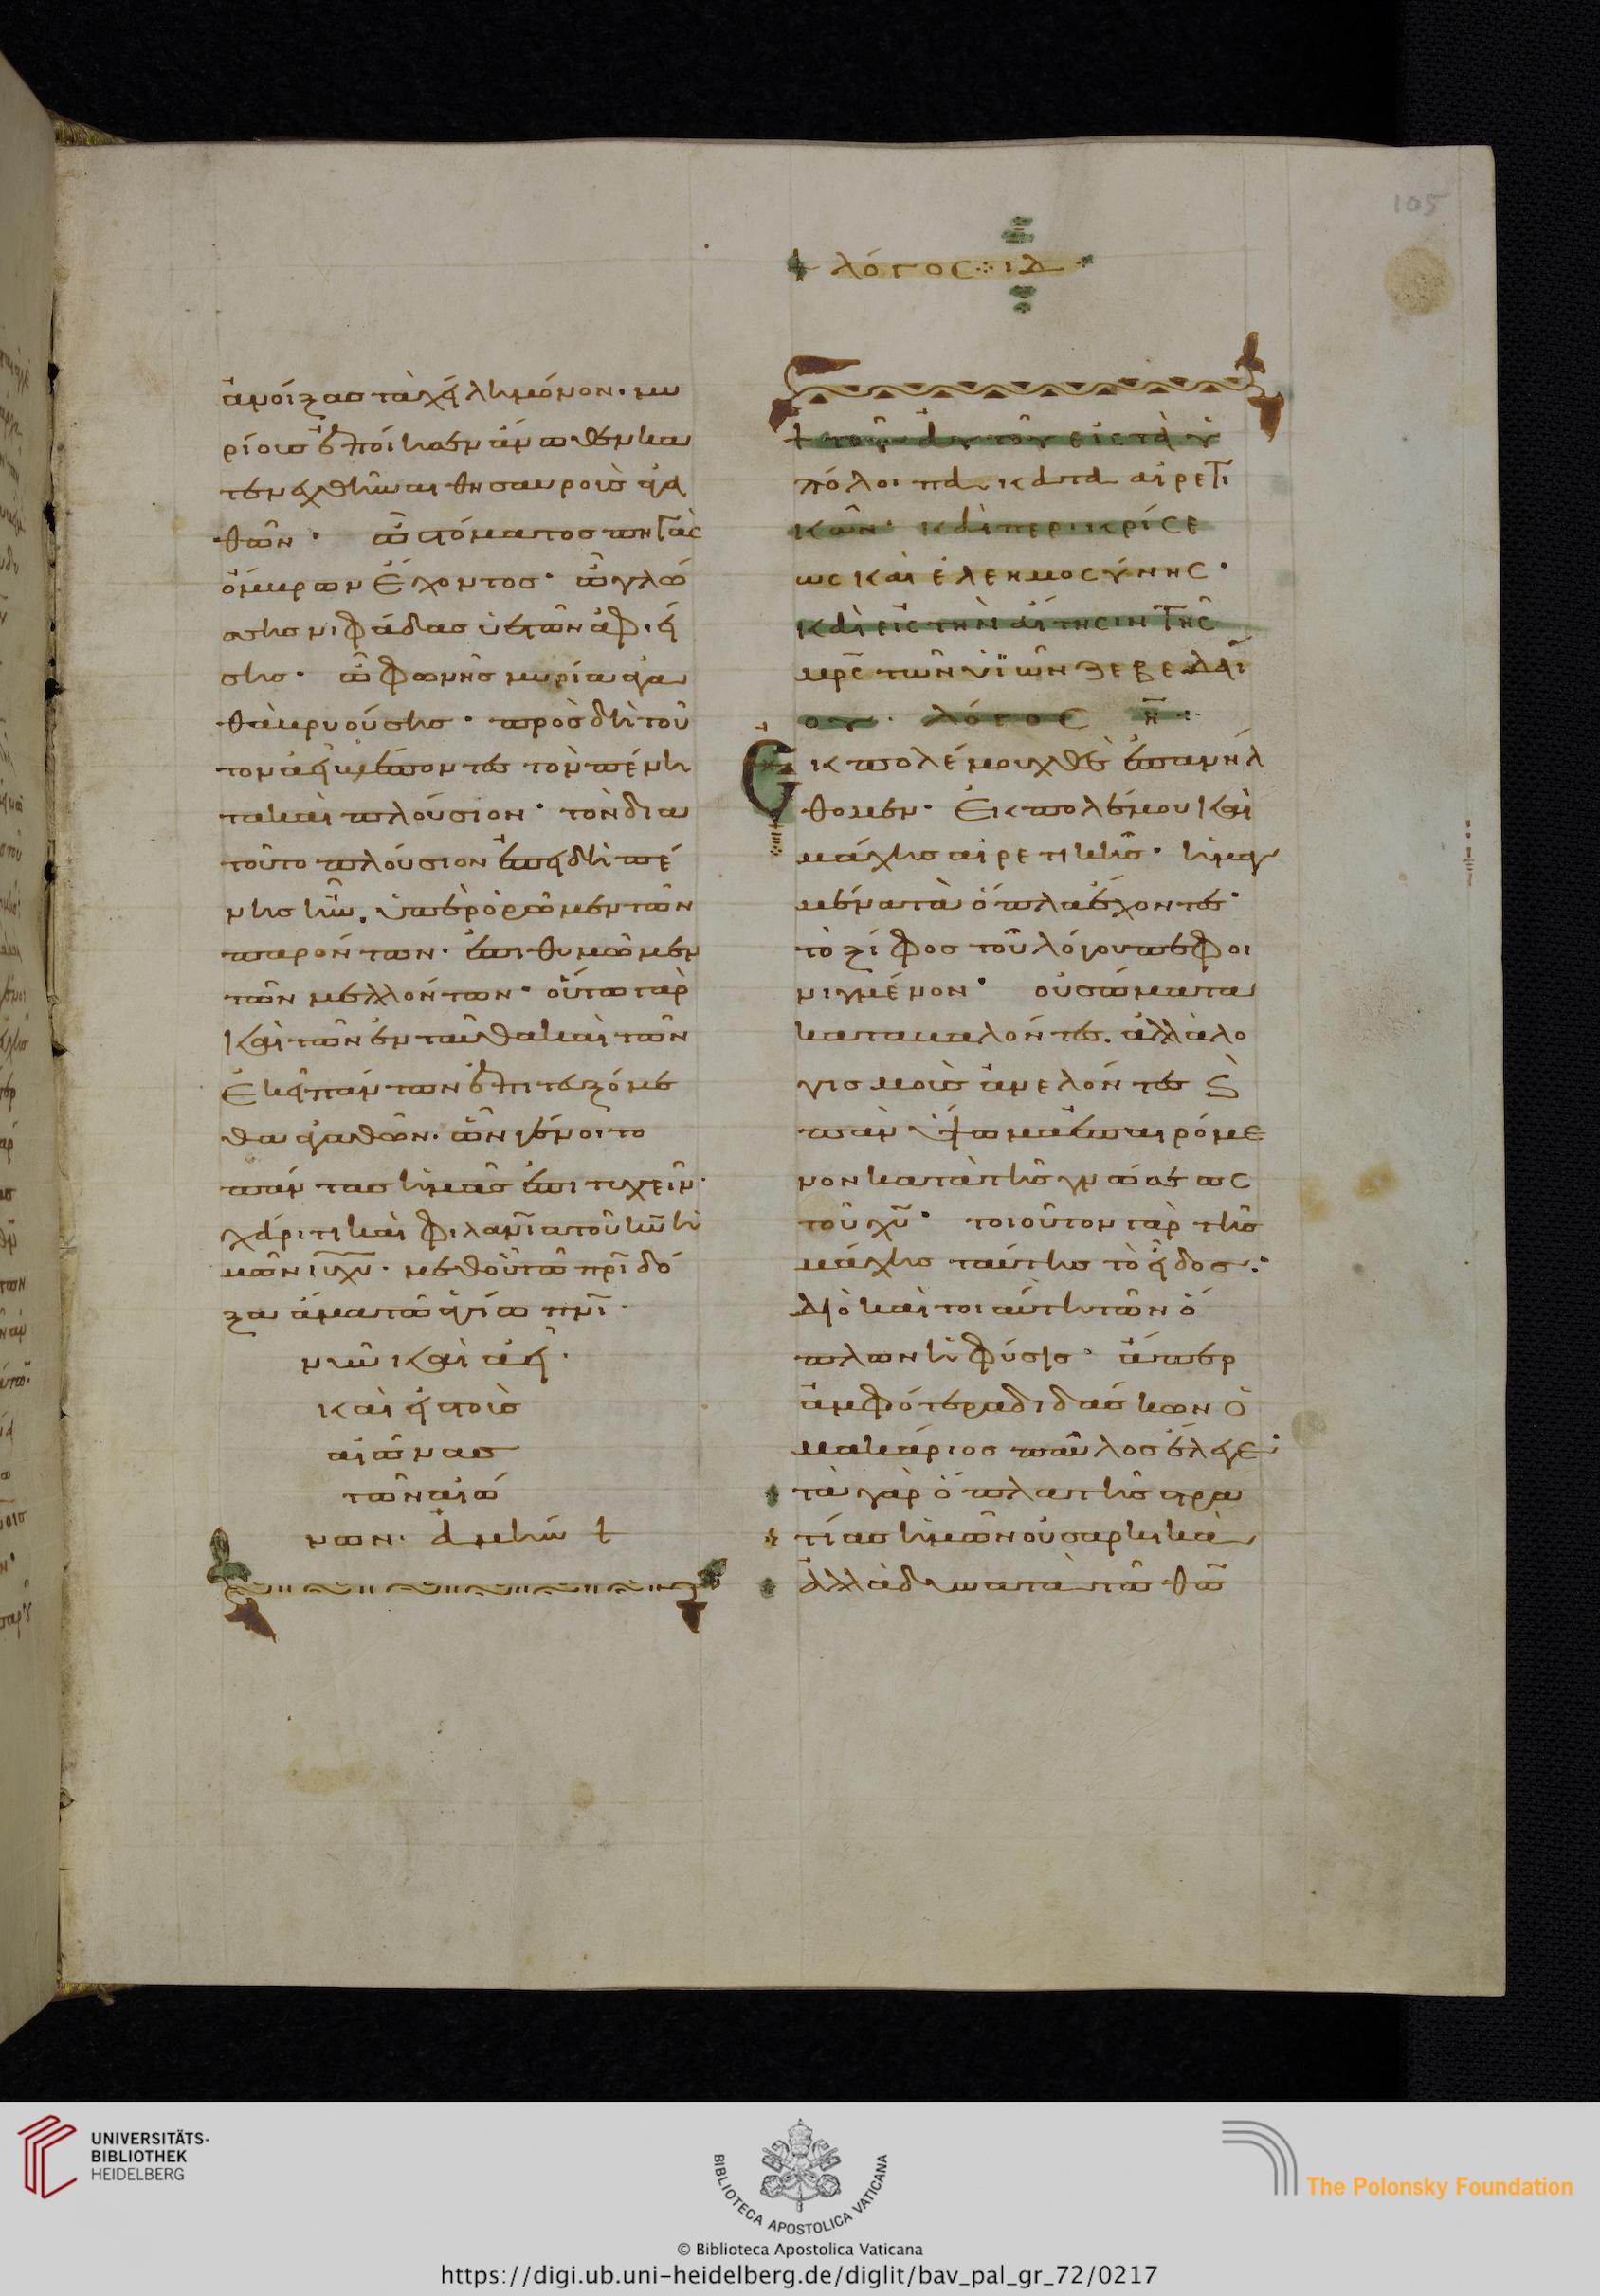 105
λόγος ιδ
ἀνοίξας τὰ χείλη μόνον· μυ
ρίοις ἐποίησεν ἄνωθεν κα
τενεχθῆναι θησαυροὺς ἀγα
θῶν· ὢ στόματος πηγὰς
ὄμβρων ἔχοντος· ὢ γλώσ
σης νιφάδας ὑετῶν ἀφιεί
σης· ὢ φωνῆς μυρία ἀγα
θὰ βρυούσης· πρὸς δὴ τοῦ
τον ἀεὶ βλέποντες τὸν πένη
τα καὶ πλούσιον· τὸν δια
τοῦτο πλούσιον ἐπειδὴ πέ
νης ἦν. ὑπερορῶμεν τῶν
παρόντων· ἐπιθυμῶμεν
τῶν μελλόντων· οὕτω γὰρ
καὶ τῶν ἐνταῦθα καὶ τῶν
ἐκεῖ πάντων ἐπιτευξόμε
θα ἀγαθῶν· ὧν γένοιτο
πάντας ἡμᾶς ἐπιτυχεῖν·
χάριτι καὶ φιλανΐα τοῦ κῡ ἡ
μῶν ῑῡ χῡ· μεθ οὗ τῶ πρῑ δό
ξα ἅμα τῶ ἁγίω πνῑ·
νῦν καὶ ἀεί·
καὶ εἰς τοὺς
αἰῶνας
τῶν αἰώ
νων· ἀμήν
τοῦ αὐτοῦ εἰς τὰ ὑ
πόλοιπα κατὰ αἱρετι
κῶν· καὶ περὶ κρίσε
ως καὶ ἐλεημοσύνης·
καὶ εἰς τὴν αἴτησιν τῆς
μρ̄ς τῶν υἱῶν ζεβεδαί
ου· λόγος η̄
Ἐκ πολέμου χθὲς ἐπανήλ
θομεν· ἐκ πολέμου καὶ
μάχης αἱρετικῆς· ἡμαγ
μένα τὰ ὅπλα ἔχοντες·
τὸ ξίφος τοῦ λόγου πεφοι
νιγμένον· οὐ σώματα
καταβαλόντες. ἀλλὰ λο
γισμοὺς ἀνελόντες ϗ
πᾶν ὕψωμα ἐπαιρόμε
νον κατὰ τῆς γνώσεως
τοῦ χῡ· τοιοῦτον γὰρ τῆς
μάχης ταύτης τὸ εἶδος·
διὸ καὶ τοιαύτη τῶν ὅ
πλων ἡ φύσις· ἅπερ
ἀμφότερα διδάσκων ὁ
μακάριος παῦλος ἔλεγε·
τὰ γὰρ ὅπλα τῆς στρα
τίας ἡμῶν οὐ σαρκικὰ
ἀλλὰ δυνατὰ τῶ θω̄
UNIVERSITÄTS-
BIBLIOTHEK
HEIDELBERG
BIBLIOTECA APOSTOLICA VATICANA
The Polonsky Foundation
© Biblioteca Apostolica Vaticana
https://digi.ub.uni-heidelberg.de/diglit/bav_pal_gr_72/0217